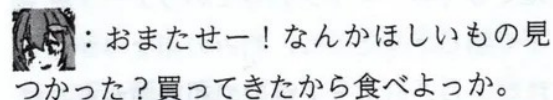 ：おまたせー！なんかほしいもの見
つかった？買ってきたから食べよっか。